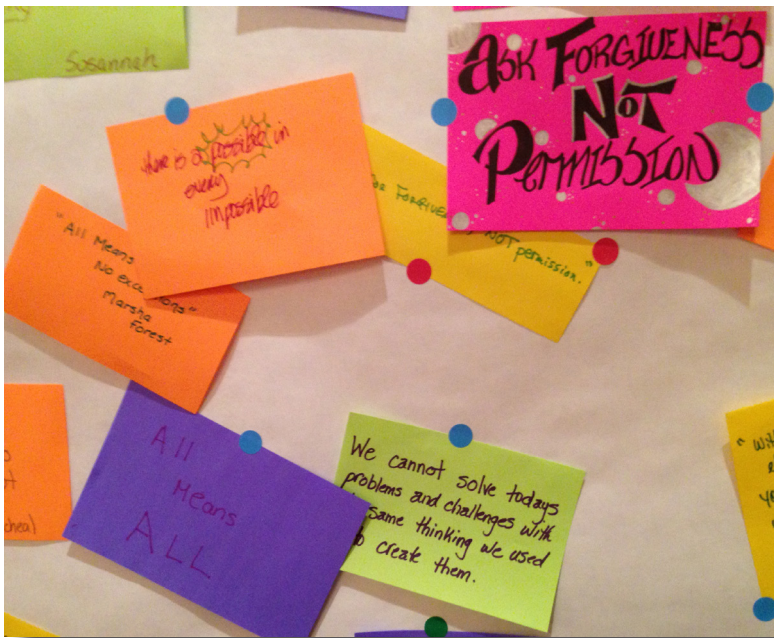 Susannah
ASK FORGIVENESS
NOT
PERMISSION
there is a possible in
every
impossible
FORGIVE
NOT permission."
"All Means
No
Marsha
Forest
All
Means
ALL
We cannot solve todays
problems and challenges with
same thinking we used
create them.